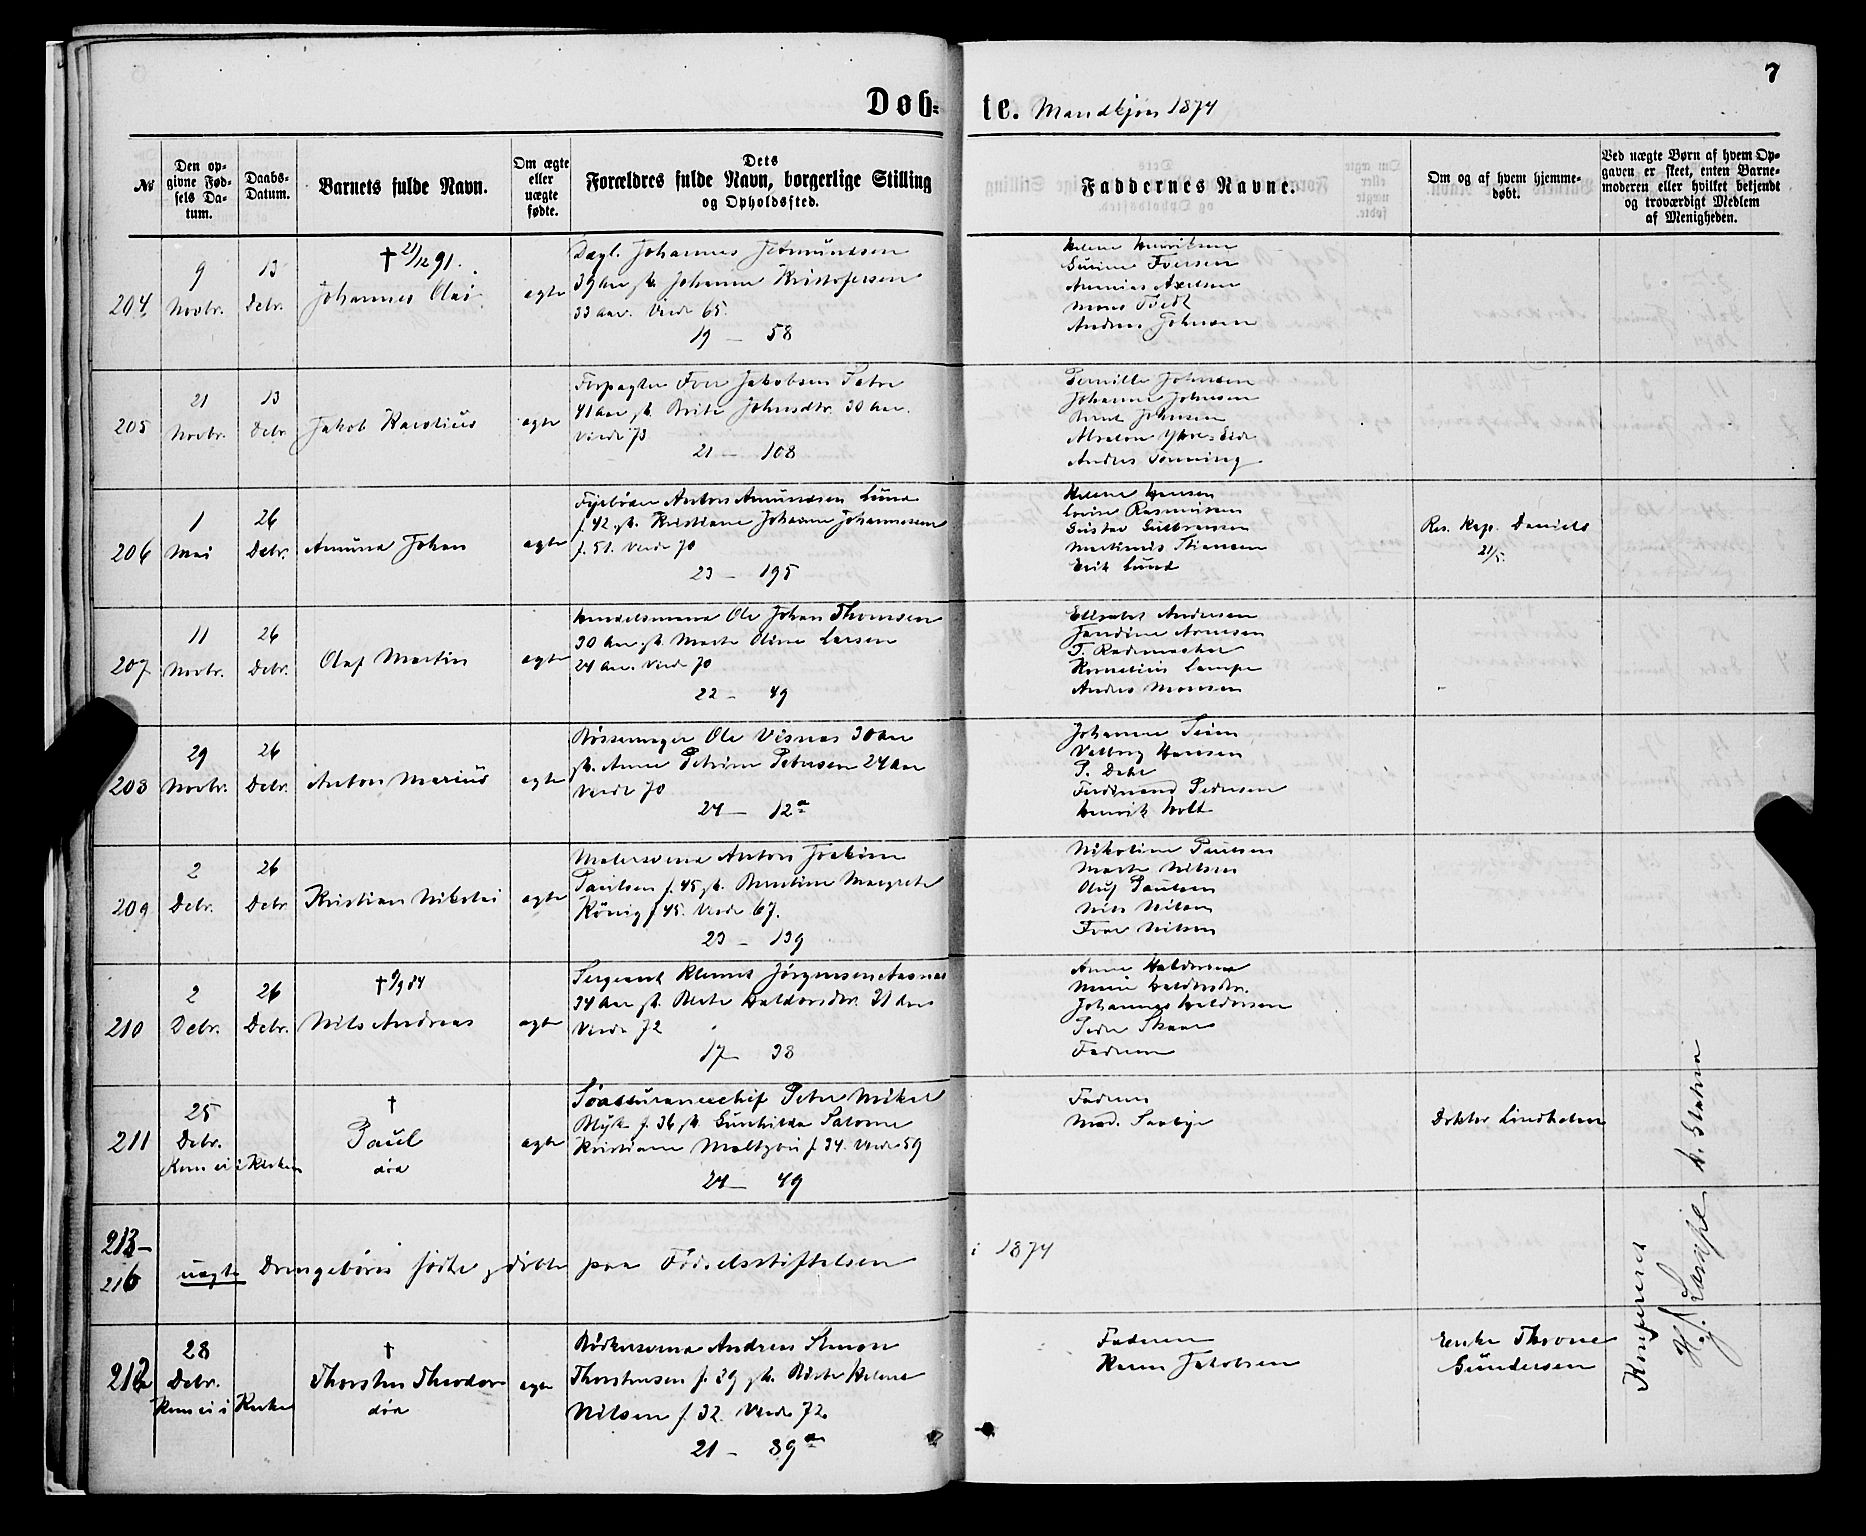 7
Døb- te. Mandkjøn 1874
№
Den op-
givne Fød-
sels Da-
tum.
Daabs-
Datum.
Barnets fulde Navn.
Om ægte
eller
uægte
fødte.
Dets
Forældres fulde Navn, borgerlige Stilling
og Opholdssted.
Faddernes Navne.
Om og af hvem hjemme-
døbt.
Ved uægte Børn af hvem Op-
gaven er skeet, enten Barne-
moderen eller hvilket bekjendt
og troværdigt Medlem
af Menigheden.
204.
9
Novbr.
13
Debr.
† 21/12 91.
Johannes Olai
ægte
Dagl. Johannes
39 Aar gh. Johanne Kristofersen
33 Aar. Viede 65.
19 — 58
Helene Henriksen
Iversen
Axelsen
Mons Tvedt
Andreas Johnsen
205
21
Novbr.
13
Debr
Jakob Karolius
ægte
Forpagter Iver Jakobsen
41 Aar gh. Brite Johnsdtr. 30 Aar.
Viede 73
21 — 108
Pernille Johnsen
Johanne Johnsen
Johnsen
Anders
206
1
Mai
26
Debr.
Amund Johan
ægte
Fyrbøder Anton Amundsen Lund
f. 42 gh. Kristiane Johanne Johannesen
f. 51. Viede 70
23 — 195
Helene Hansen
Lovise Rasmussen
Gustav Gulbransen
Erik Lund
Res. Kap. Daniels
21/5.
207
11
Novbr.
26
Debr.
Olaf Martin
ægte
Handelsmand Ole Johan Thomsen
30 Aar gh. Marte Oline Larsen
24 Aar. Viede 70
22 — 49
Elisabet Andersen
Jandine Arnesen
T. Rademacher
Kornelius Lampe
Anders Monsen
208
29
Novbr.
26
Debr.
Anton Marius
ægte
Bøssemager Ole Visnes 30 Aar
gh. Anne Petrine Petersen 24 Aar
Viede 70
24 — 12a
Johanne
Valborg Hansen
P. Dahl
Ferdinand Pedersen
Henrik Holt
209
2
Debr.
26
Debr
Kristian Nikolai
ægte
Malersvend Anton Joakim
Paulsen f. 45 gh. Berntine Margrete
König f. 45. Viede 67.
23 — 139
Nikoline Paulsen
Marte Nilsen
Oluf Paulsen
Nils Nilsen
Iver Nilsen
210
2
Debr.
26
Debr.
† 9/9 84
Nils Andreas
ægte
Sergeant Klemet Jörgensen Aasnæs
34 Aar gh. Berte Haldorsdtr. 31 Aar
Viede 72
17 — 38
Anne Haldorsen
Haldorsdtr.
Johannes Haldorsen
Peder Skaar
Faderen
211
25
Debr.
Kom ei i Kirken
†
Paul
død
ægte
Søassuranschef Peter Mikal
Blytt f. 36 gh. Gunhilda Salome
Kristiane f. 34. Viede 59
24 — 49
Faderen
Mad. Saabye
Doktor Lindholm
213—
216
uægte Drengebörn födte g döbte paa Födselsstiftelsen i 1874
212
28
Debr.
Kom ei i Kirke
†
Thorsten Theodor
død
ægte
Bødkersvend Andreas Simon
Thorstensen f. 39 gh. Berte Helene
Nilsen f. 32. Viede 72
21 — 89a
Faderen
Karen Jakobsen
Enke Throne
Gundersen
Konfereret
H. J. Lampe